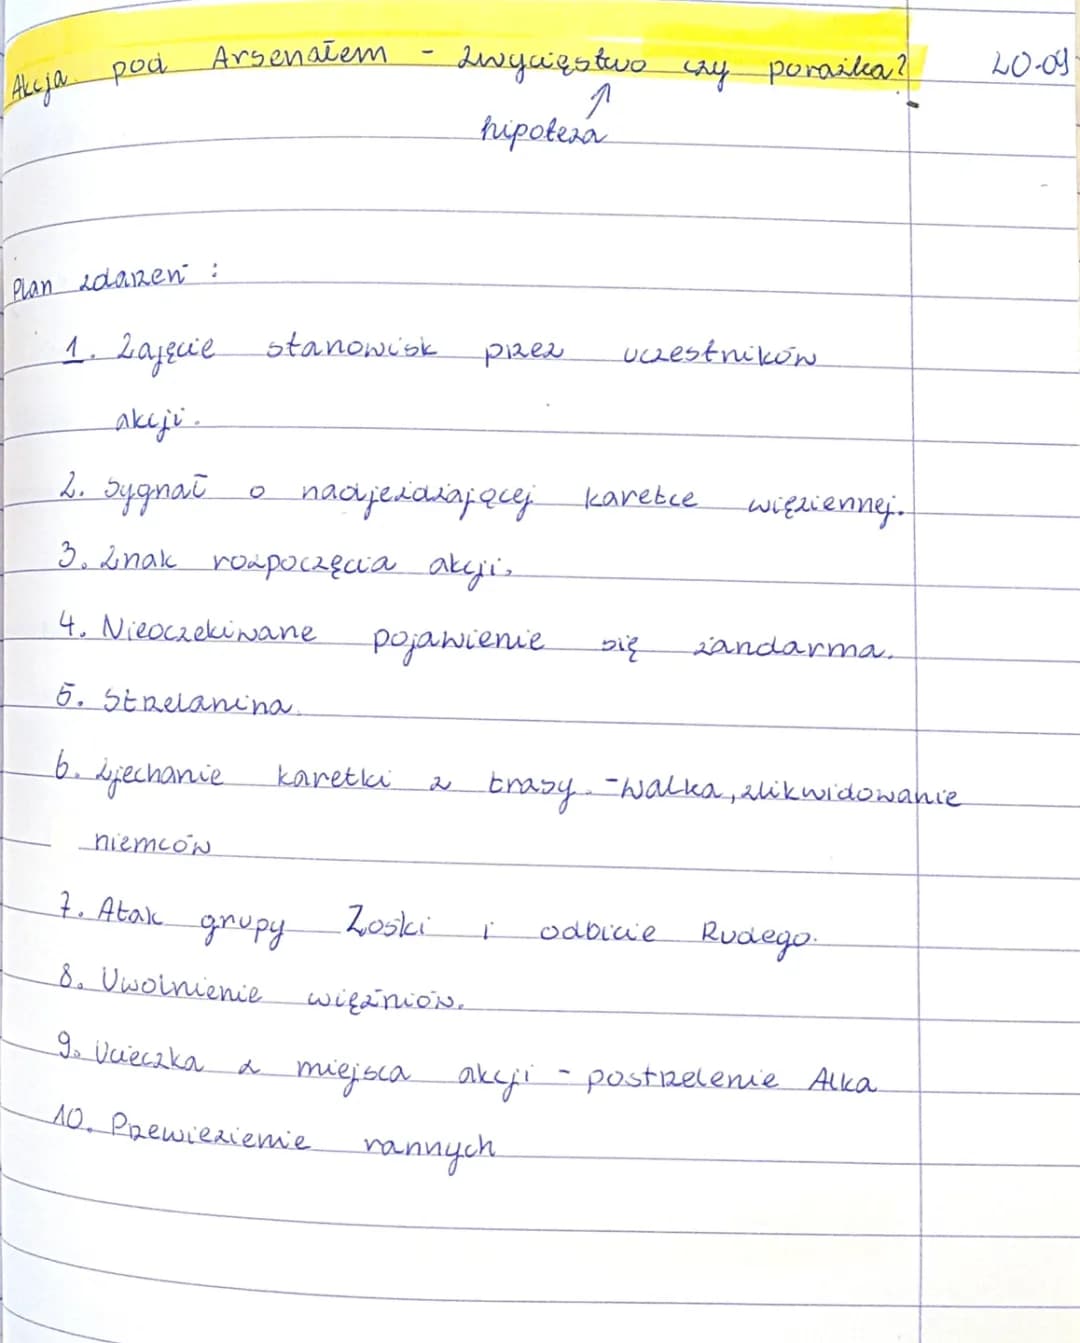 Akcja pod Arsenałem - zwycięstwo czy porażka? 20.09
hipoteza
Plan zdarzeń :
1. Zajęcie stanowisk przez uczestników
akcji.
2. Sygnał o nadjeżdżającej karetce więziennej.
3. Znak rozpoczęcia akcji.
4. Nieoczekiwane pojawienie się żandarma.
5. Strzelanina.
6. Zjechanie karetki z trasy. - walka, zlikwidowanie
niemców
7. Atak grupy Zośki i odbicie Rudego.
8. Uwolnienie więźniów.
9. Ucieczka z miejsca akcji - postrzelenie Alka
10. Przewiezienie rannych